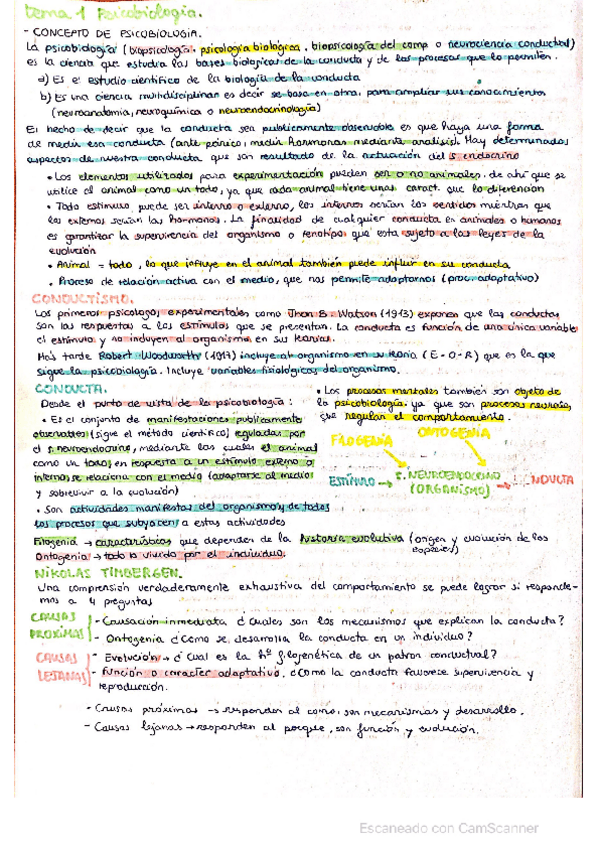 tema 1 Psicobiología.
- CONCEPTO DE PSICOBIOLOGIA.
La psicobiología (biopsicología, psicología biológica, biopsicología del comp o neurociencia conductual)
es la ciencia que estudia las bases biologicas de la conducta y de los procesos que lo permiten.
a) Es el estudio científico de la biología de la conducta
b) Es una ciencia multidisciplinar es decir se basa en otras para ampliar sus conocimientos
(neuroanatomia, neuroquímica o neuroendocrinología)
El hecho de decir que la conducta sea publicamente observable es que haya una forma
de medir esa conducta (ante pánico, medir hormonas mediante analisis). Hay determinados
aspectos de nuestra conducta que son resultado de la actuación del s endocrino
• Los elementos utilizados para experimentación pueden ser o no animales, de ahí que se
utilice al animal como un todo, ya que cada animal tiene unas caract. que lo diferencian
• Todo estimulo puede ser interno o externo, los internos serían los sentidos mientras que
los externos serían las hormonas. La finalidad de cualquier conducta en animales o humanos
es garantizar la supervivencia del organismo o fenotipo que esta sujeto a las leyes de la
evolución
• Animal = todo, lo que influye en el animal también puede influir en su conducta
• Proceso de relación activa con el medio, que nos permite adaptarnos (proc. adaptativo)
CONDUCTISMO.
Los primeros psicologos experimentales como Jhon B. Watson (1913) exponen que las conductas
son las respuestas a los estímulos que se presentan. La conducta es función de una única variable
el estímulo y no incluyen al organismo en sus teorías.
Más tarde Robert Woodworth (1917) incluye al organismo en su teoria (E-O-R) que es la que
sigue la psicobiología. Incluye variables fisiológicas del organismo.
CONDUCTA.
Desde el punto de vista de la psicobiología:
• Es el conjunto de manifestaciones publicamente
observables (sigue el método científico) reguladas por
el s. neuroendocrino, mediante las cuales el animal
como un todo, en respuesta a un estímulo externo o
interno, se relaciona con el medio (adaptarse al medio
y sobrevivir a la evolución)
• Son actividades manifestas del organismo y de todos
los procesos que subyacen a estas actividades
• Los procesos mentales también son objeto de
la psicobiología, ya que son procesos neurales,
que regulan el comportamiento.
FILOGENÍA
ONTOGENÍA
ESTÍMULO → S. NEUROENDOCRINO → NDUCTA
(ORGANISMO)
Filogenia → características que dependen de la historia evolutiva (origen y evolución de las
especies)
Ontogenia → todo lo vivido por el individuo.
NIKOLAS TIMBERGEN.
Una comprensión verdaderamente exhaustiva del comportamiento se puede lograr si responde-
mos a 4 preguntas
CAUSAS PROXIMAS
- Causación inmediata ¿Cuales son los mecanismos que explican la conducta?
- Ontogenia ¿Cómo se desarrolla la conducta en un individuo?
CAUSAS LEJANAS
- Evolución → ¿Cual es la hª filogenética de un patron conductual?
- Función o caracter adaptativo. ¿Como la conducta favorece supervivencia y
reproducción.
- Causas próximas → responden al como, son mecanismos y desarrollo.
- Causas lejanas → responden al porque, son función y evolución.
Escaneado con CamScanner